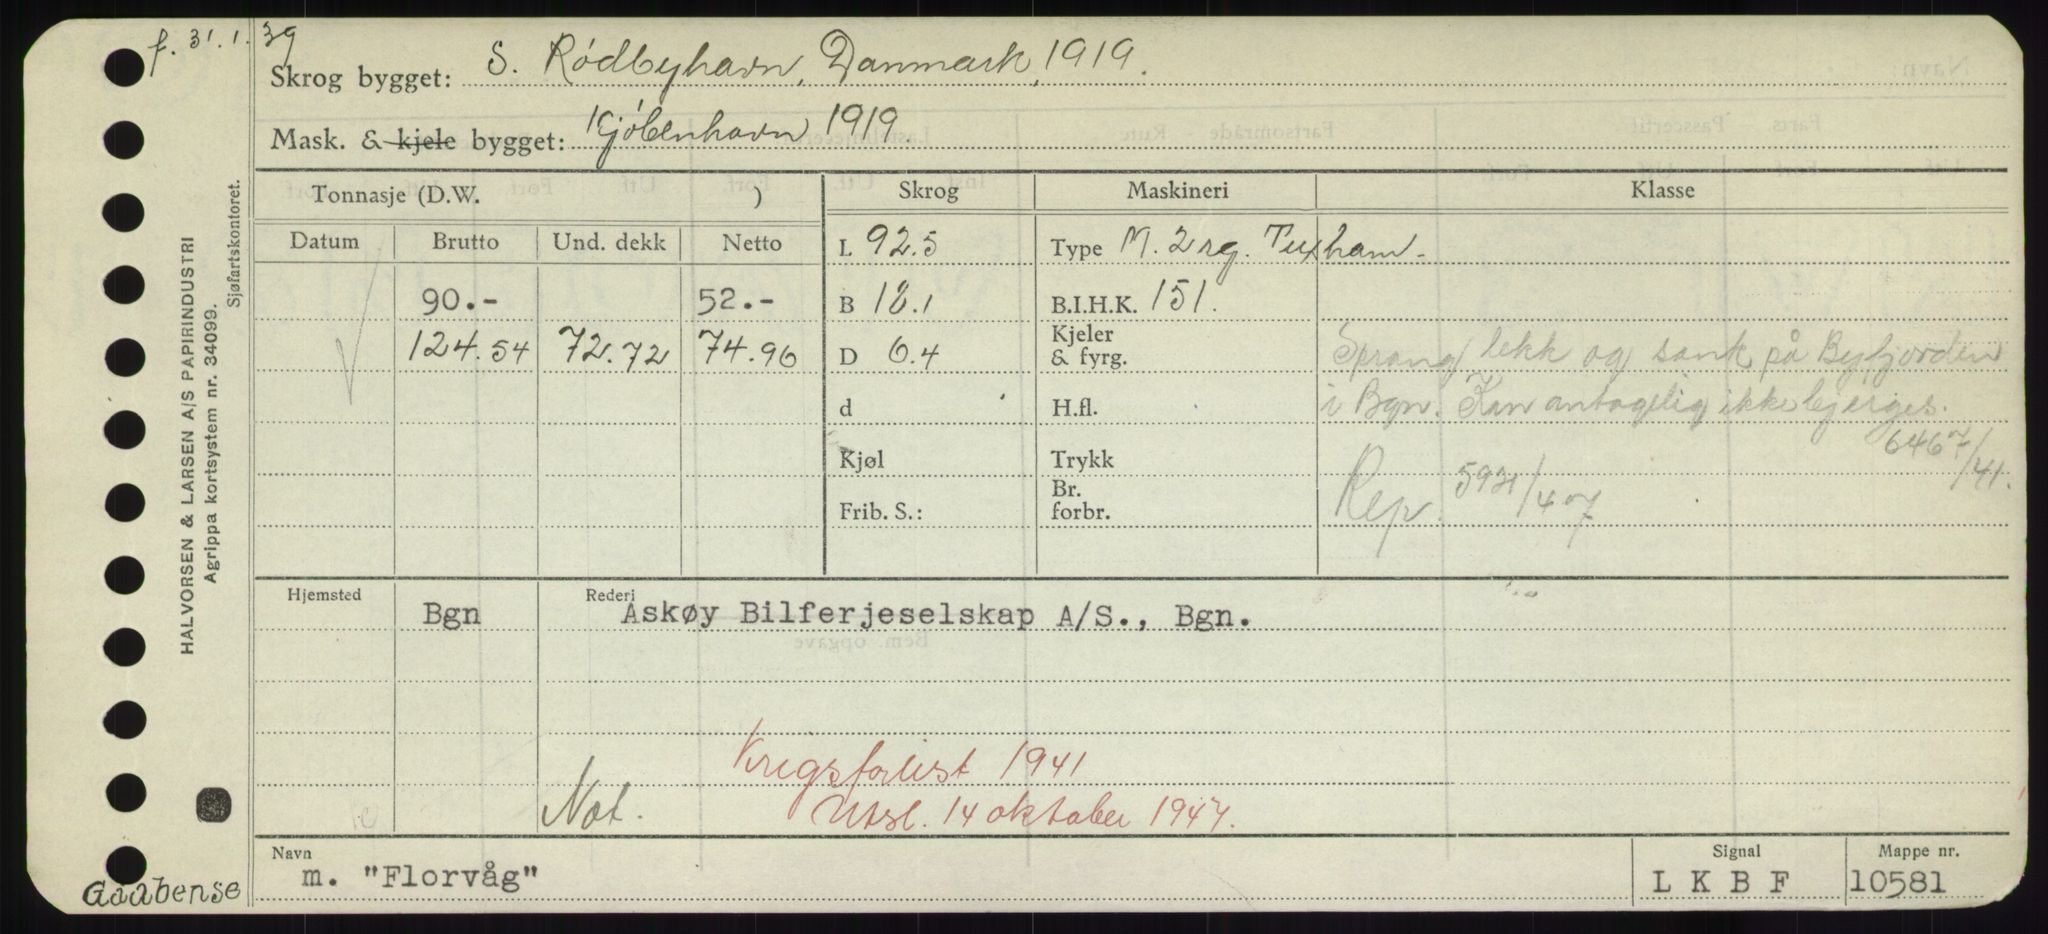 f. 31.1.39
Skrog bygget: S. Rødbyhavn, Danmark, 1919.
Mask. & kjele bygget: Kjöbenhavn 1919.
Tonnasje (D.W. ) Skrog Maskineri Klasse
Datum Brutto Und. dekk Netto L 92.5 Type M. 2 sg. Tuxham.
90.- 52.- B 18.1 B.I.H.K. 151.
124.54 72.72 74.96 D 6.4 Kjeler & fyrg.
Sprang lekk og sank på Byfjorden
d H.fl. i Bgn. Kan antagelig ikke bjerges.
6467/41.
Kjøl Trykk
Rep. 5921/47
Frib. S.: Br. forbr.
Hjemsted Bgn Rederi Askøy Bilferjeselskap A/S., Bgn.
Krigsforlist 1941
Not. Utsl. 14 oktober 1947.
Navn Signal Mappe nr.
m. "Florvåg" L K B F 10581
Gaabense
HALVORSEN & LARSEN A/S PAPIRINDUSTRI
Agrippa kortsystem nr. 34099.
Sjøfartskontoret.